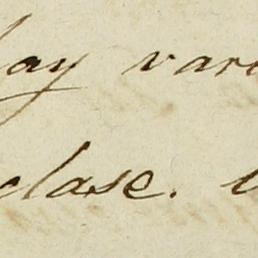 hay vari
clase.